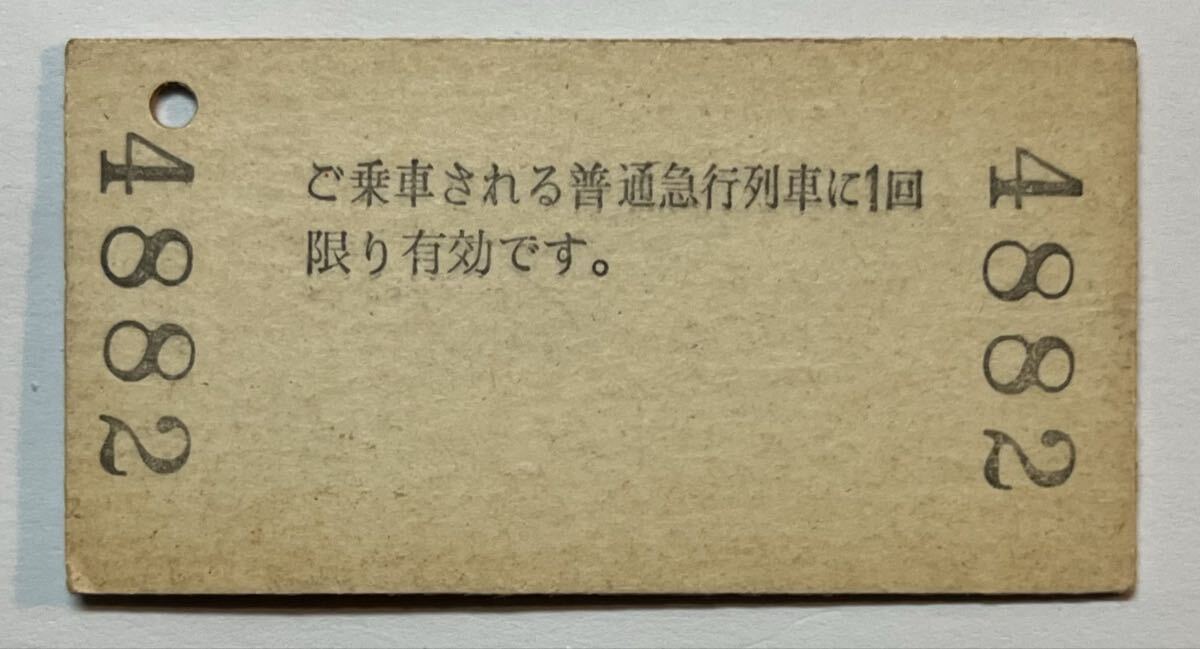 4882
ご乗車される普通急行列車に1回
限り有効です。
4882